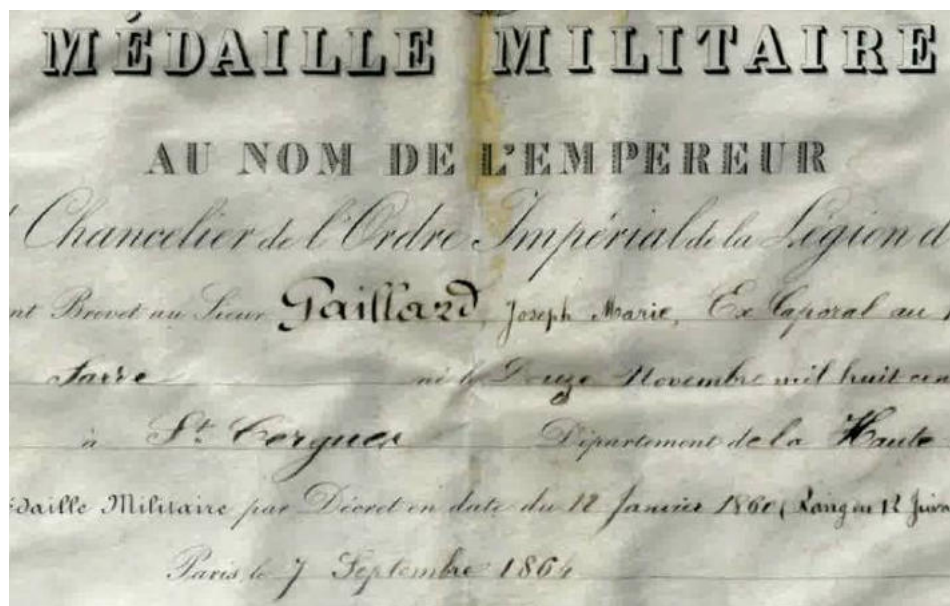 MÉDAILLE MILITAIRE
AU NOM DE L'EMPEREUR
Chancelier de l'Ordre Impérial de la Légion d
nt Brevet au Sieur Gaillard, Joseph Marie, Ex Caporal au
né le Douze Novembre mil huit cen
à St. Cergues Département de la Haute
édaille Militaire par Décret en date du 12 Janvier 1860 (Rang du 12
Paris, le 7 Septembre 1864